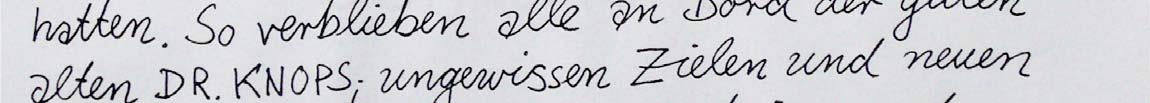 hatten. So verblieben alle an Bord der guten
alten DR. KNOPS; ungewissen Zielen und neuen